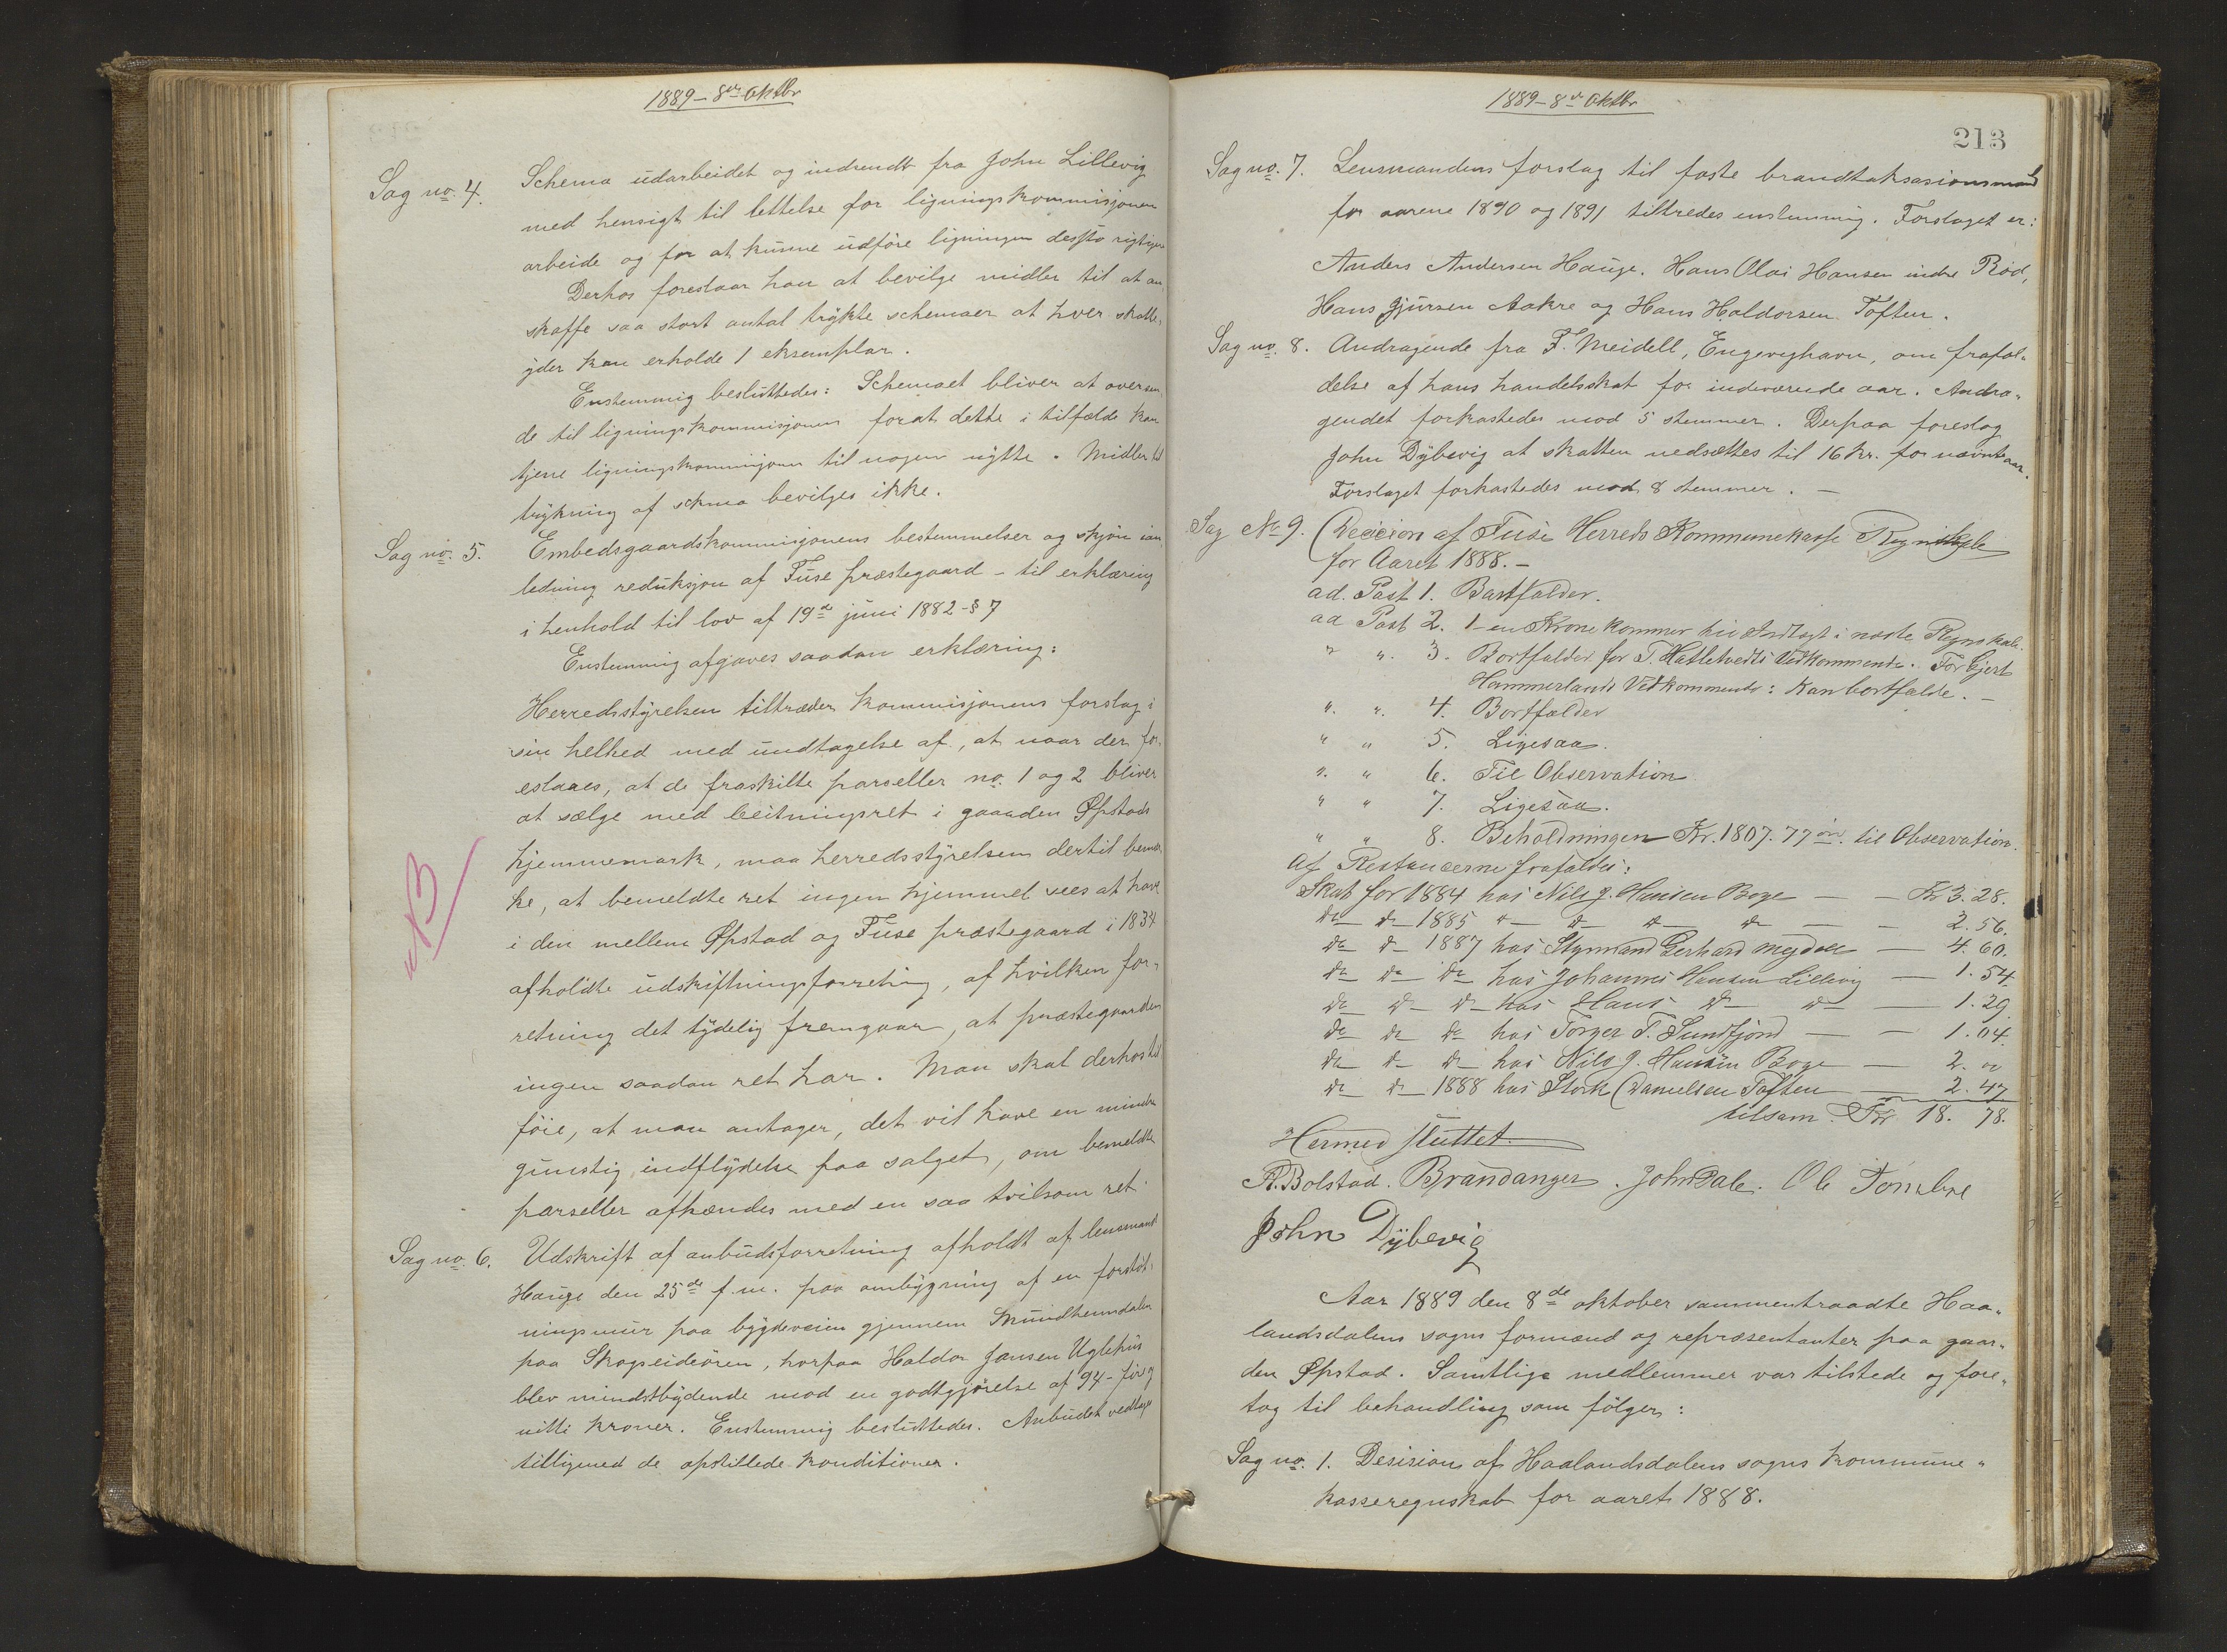 1889 - 8de Oktbr
Sag no. 4. Schema udarbeidet og indsendt fra John Lillevig
med hensigt til lettelse for ligningskommisjonens
arbeide og for at kunne udføre ligningen dessto rigtigere
Derhos foreslaar han at bevilge midler til at an
skaffe saa stort antal trykte schemaer at hver skatte,
yder kan erholde 1 eksemplar.
Enstemmig besluttedes: Schemaet bliver at oversen,
de til ligningskommisjonen forat dette i tilfælde kan
tjene ligningskommisjonen til nogen nytte. Midler til
trykning af schma bevilges ikke.
Sag no. 5. Embedsgaardskommisjonens bestemmelser og skjøn i an
ledning reduksjon af Fuse præstegaard - til erklæring
i henhold til lov af 19de juni 1882 - § 7
Enstemmig afgaves saadan erklæring:
Herredsstyrelsen tiltræder kommisjonens forslag i
sin helhed med undtagelse af, at naar der for,
eslaaes, at de fraskilte parseller no. 1 og 2 bliver
at sælge med beitningsret i gaarden Øpstads
hjemmemark, maa herredsstyrelsen dertil bemær
ke, at bemeldte ret ingen hjemmel sees at have
NB
i den mellem Øpstad og Fuse præstegaard i 1834
afholdte udskiftningsforretning, af hvilken for,
retning det tydelig fremgaar, at præstegaarden
ingen saadan ret har. Man skal derhos til
føie, at man antager, det vil have en mindre
gunstig indflydelse paa salget, om bemeldte
parseller afhændes med en saa tvilsom ret
Sag no. 6. Udskrift af anbudsforretning afholdt af lensmand
Hauge den 25de f.m. paa ombygning af en forstøt,
ningsmur paa bygdeveien gjennem
paa Skogseideøren, horpaa Haldor Jansen Uglehus
blev mindstbydende mod en godtgjørelse af 94 - fir og
nitti kroner. Enstemmig besluttedes. Anbudet vedtages
tilligemed de opstillede konditioner.
1889 - 8de Oktbr
213
Sag no. 7. Lensmandens forslag til faste brandtaksasionsmænd
for aarene 1890 og 1891 tiltredes enstemmig. Forslaget er:
Anders Andersen Hauge. Hans Olai Hansen indre Rød,
Hans Gjursen Aakre og Hans Haldorsen Toften.
Sag no. 8. Andragende fra F. Meidell, Engevighavn, om frafal,
delse af hans handelsskat for indeværende aar. Andra,
gendet forkastedes mod 5 stemmer. Derpaa foreslog
John Dybevig at skatten nedsættes til 16 kr. for nævnte aar.
Forslaget forkastedes mod 8 stemmer. -
Sag No 9. Decision af Fuse Herreds Kommunekasse Regnskab
for Aaret 1888. -
ad. Post 1. Bortfalder.
ad Post 2. 1 - en Krone kommer til Indtægt i næste Regnskab.
" " 3. Bortfalder for T. Hatletvedts Vedkommende. For Gjert
Hammerlands Vedkommende: Kan bortfalde. -
" " 4. Bortfalder
" " 5. Ligesaa.
" " 6. Til Observation
" " 7. Ligesaa.
" " 8. Beholdningen Kr. 1807. 77 øre til Observation.
Af Restancerne frafaldes:
Skat for 1884 hos Nils J. Hansen Boge - - Kr 3. 28.
do do 1885 " - do do do - - 2. 56.
do do 1887 hos Styrmand Gerhard Mejdell - 4. 60.
do do do hos Johannes Hansen Lillevig - 1. 54.
do do do hos Hans do do - 1. 29
do do do hos Torger T. Sundfjord - - 1. 04.
do do do hos Nils J. Hansen Boge - 2. oo
do do 1888 hos Stork Danielsen Toften - 2. 47
tilsam. Kr. 18. 78.
Hermed sluttet
A. Bolstad. Brandanger. John Dale. Ole Tombre
John Dybevig
Aar 1889 den 8de oktober sammentraadte Haa,
landsdalens sogns formænd og repræsentanter paa gaar,
den Øpstad. Samtlige medlemmer var tilstede og fore,
tog til behandling som følger:
Sag no. 1. Desision af Haalandsdalens sogns kommune,
kasseregnskab for aaret 1888.